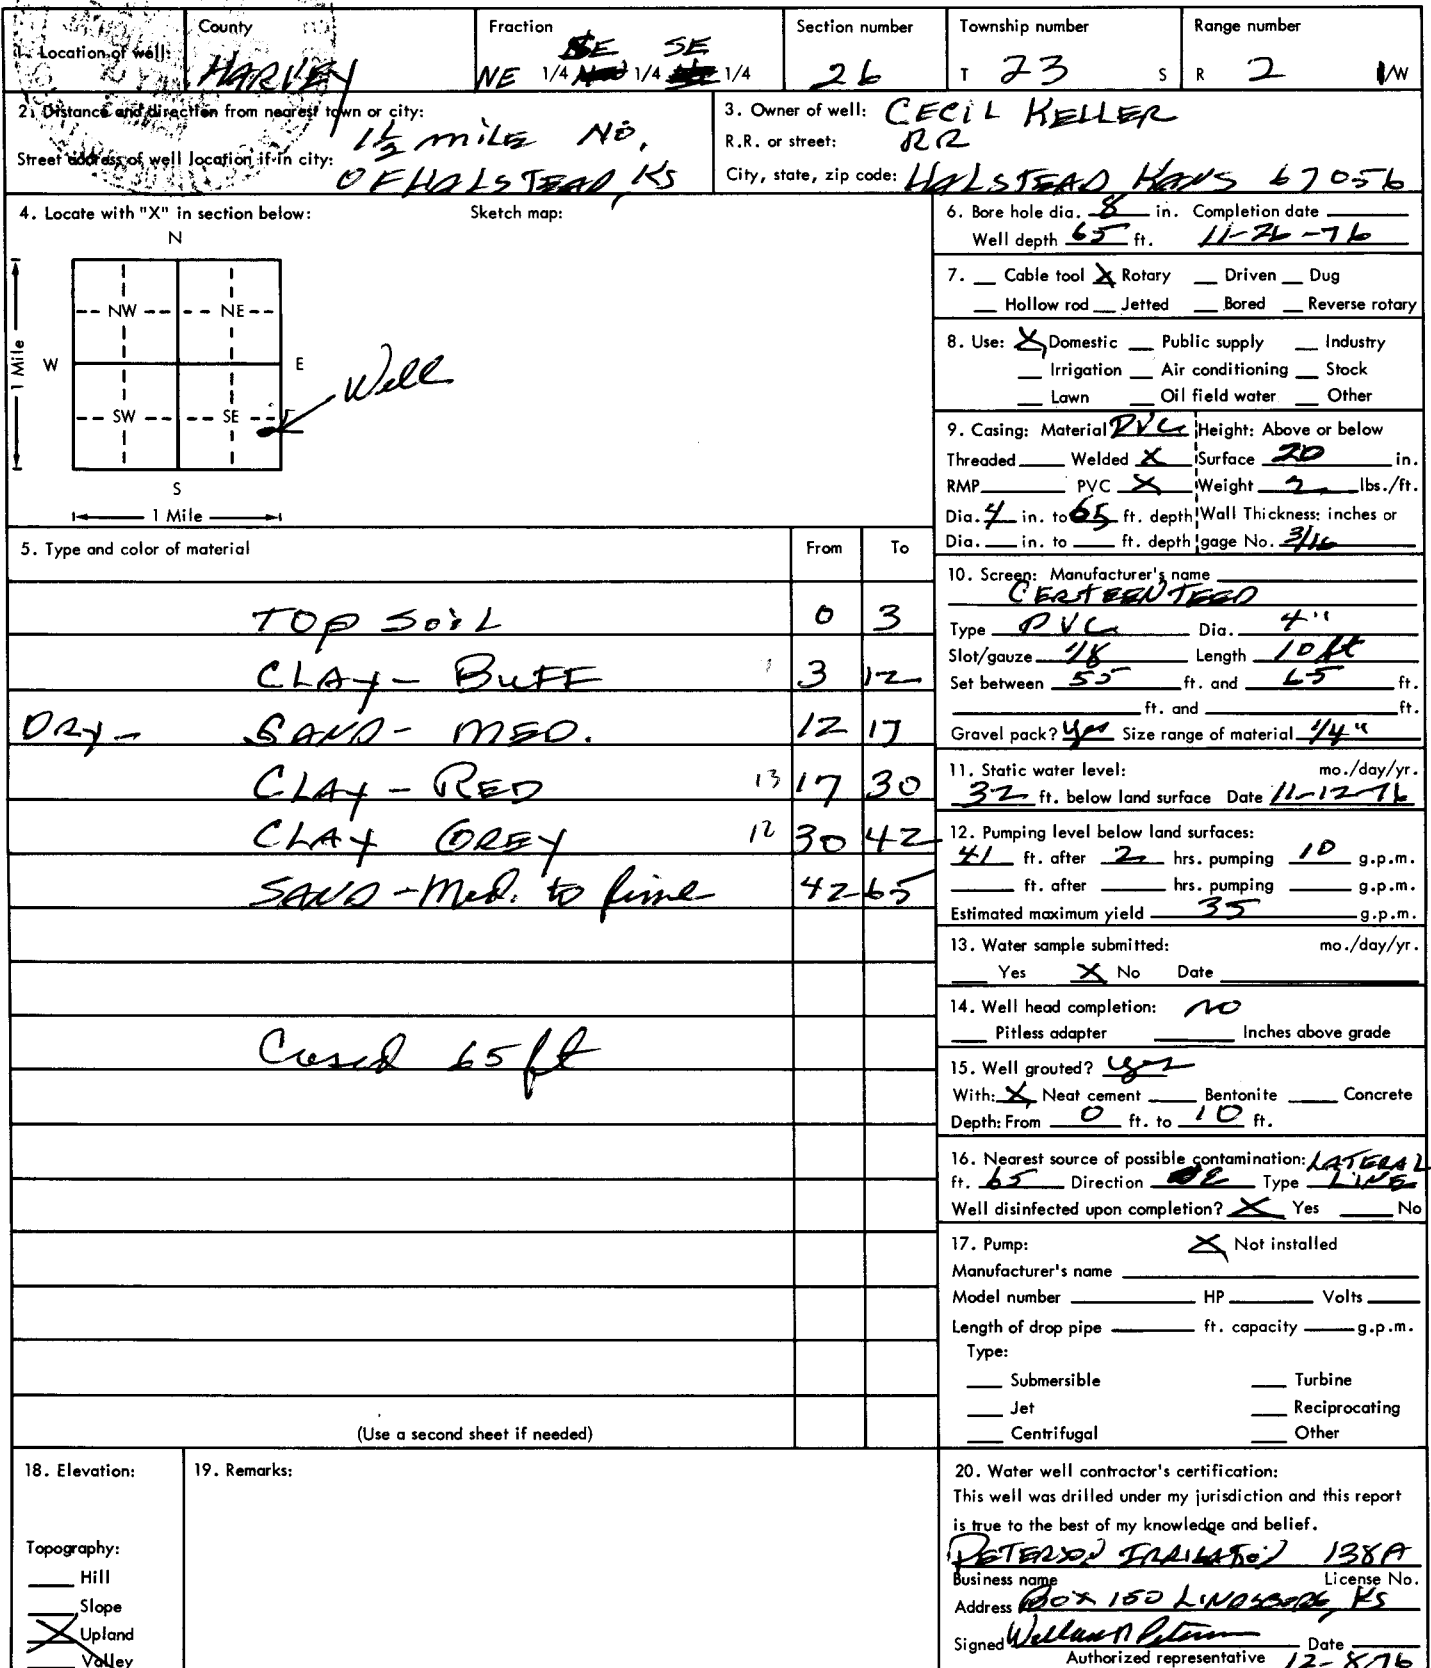 1. Location of well:
County
HARVEY
Fraction
SE SE
NE 1/4 1/4 1/4
Section number
26
Township number
T 23 S
Range number
R 2 /W
2. Distance and direction from nearest town or city:
1½ mile No.
Street address of well location if in city:
OF HALSTEAD, KS
3. Owner of well: CECIL KELLER
R.R. or street: RR
City, state, zip code: HALSTEAD KANS 67056
4. Locate with "X" in section below:
Sketch map:
N
NW NE
W E
1 Mile
SW SE
Well
S
1 Mile
5. Type and color of material From To
TOP SOIL 0 3
CLAY - BUFF 3 12
DRY - SAND - MED. 12 17
CLAY - RED 13 17 30
CLAY GREY 12 30 42
SAND - Med. to fine 42 65
Cased 65 ft
(Use a second sheet if needed)
6. Bore hole dia. 8 in. Completion date
Well depth 65 ft. 11-26-76
7. Cable tool X Rotary Driven Dug
Hollow rod Jetted Bored Reverse rotary
8. Use: X Domestic Public supply Industry
Irrigation Air conditioning Stock
Lawn Oil field water Other
9. Casing: Material PVC Height: Above or below
Threaded Welded X Surface 20 in.
RMP PVC X Weight 2 lbs./ft.
Dia. 4 in. to 65 ft. depth Wall Thickness: inches or
Dia. in. to ft. depth gage No. 3/16
10. Screen: Manufacturer's name
CERTEENTEED
Type PVC Dia. 4"
Slot/gauze 1/8 Length 10 ft
Set between 55 ft. and 65 ft.
ft. and ft.
Gravel pack? Yes Size range of material 1/4"
11. Static water level: mo./day/yr.
32 ft. below land surface Date 11-12-76
12. Pumping level below land surfaces:
41 ft. after 2 hrs. pumping 10 g.p.m.
ft. after hrs. pumping g.p.m.
Estimated maximum yield 35 g.p.m.
13. Water sample submitted: mo./day/yr.
Yes X No Date
14. Well head completion: NO
Pitless adapter Inches above grade
15. Well grouted? yes
With: X Neat cement Bentonite Concrete
Depth: From 0 ft. to 10 ft.
16. Nearest source of possible contamination: LATERAL
ft. 65 Direction E Type LINE
Well disinfected upon completion? X Yes No
17. Pump: X Not installed
Manufacturer's name
Model number HP Volts
Length of drop pipe ft. capacity g.p.m.
Type:
Submersible Turbine
Jet Reciprocating
Centrifugal Other
18. Elevation:
Topography:
Hill
Slope
X Upland
Valley
19. Remarks:
20. Water well contractor's certification:
This well was drilled under my jurisdiction and this report
is true to the best of my knowledge and belief.
PETERSON IRRIGATION 138A
Business name License No.
Address BOX 150 LINDSBORG, KS
Signed Peterson Date
Authorized representative 12-8-76